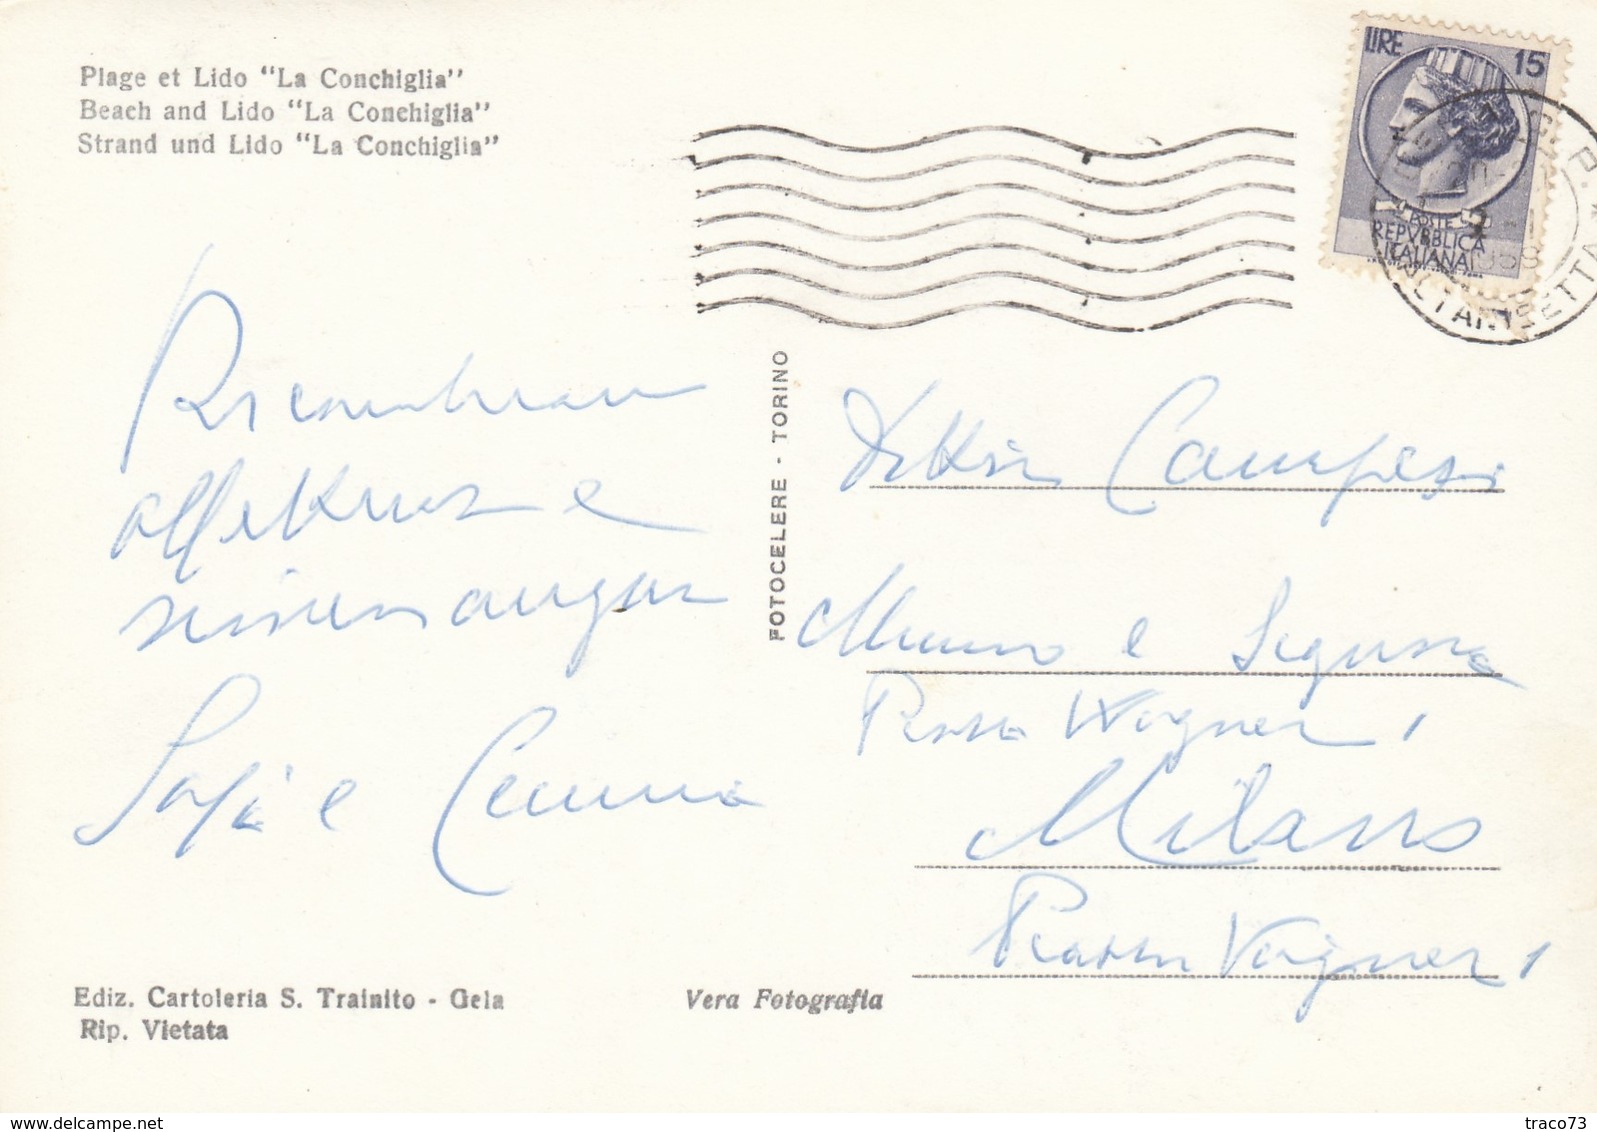 Plage et Lido "La Conchiglia"
Beach and Lido "La Conchiglia"
Strand und Lido "La Conchiglia"
LIRE 15
POSTE
REPVBBLICA
ITALIANA
Ricambiamo
affettuosi e
sinceri auguri
e Gemma
FOTOCELERE - TORINO
Campesi
e Signora
Piazza Wagner 1
Milano
Piazza Vagner 1
Ediz. Cartoleria S. Trainito - Gela
Rip. Vietata
Vera Fotografia
traco73